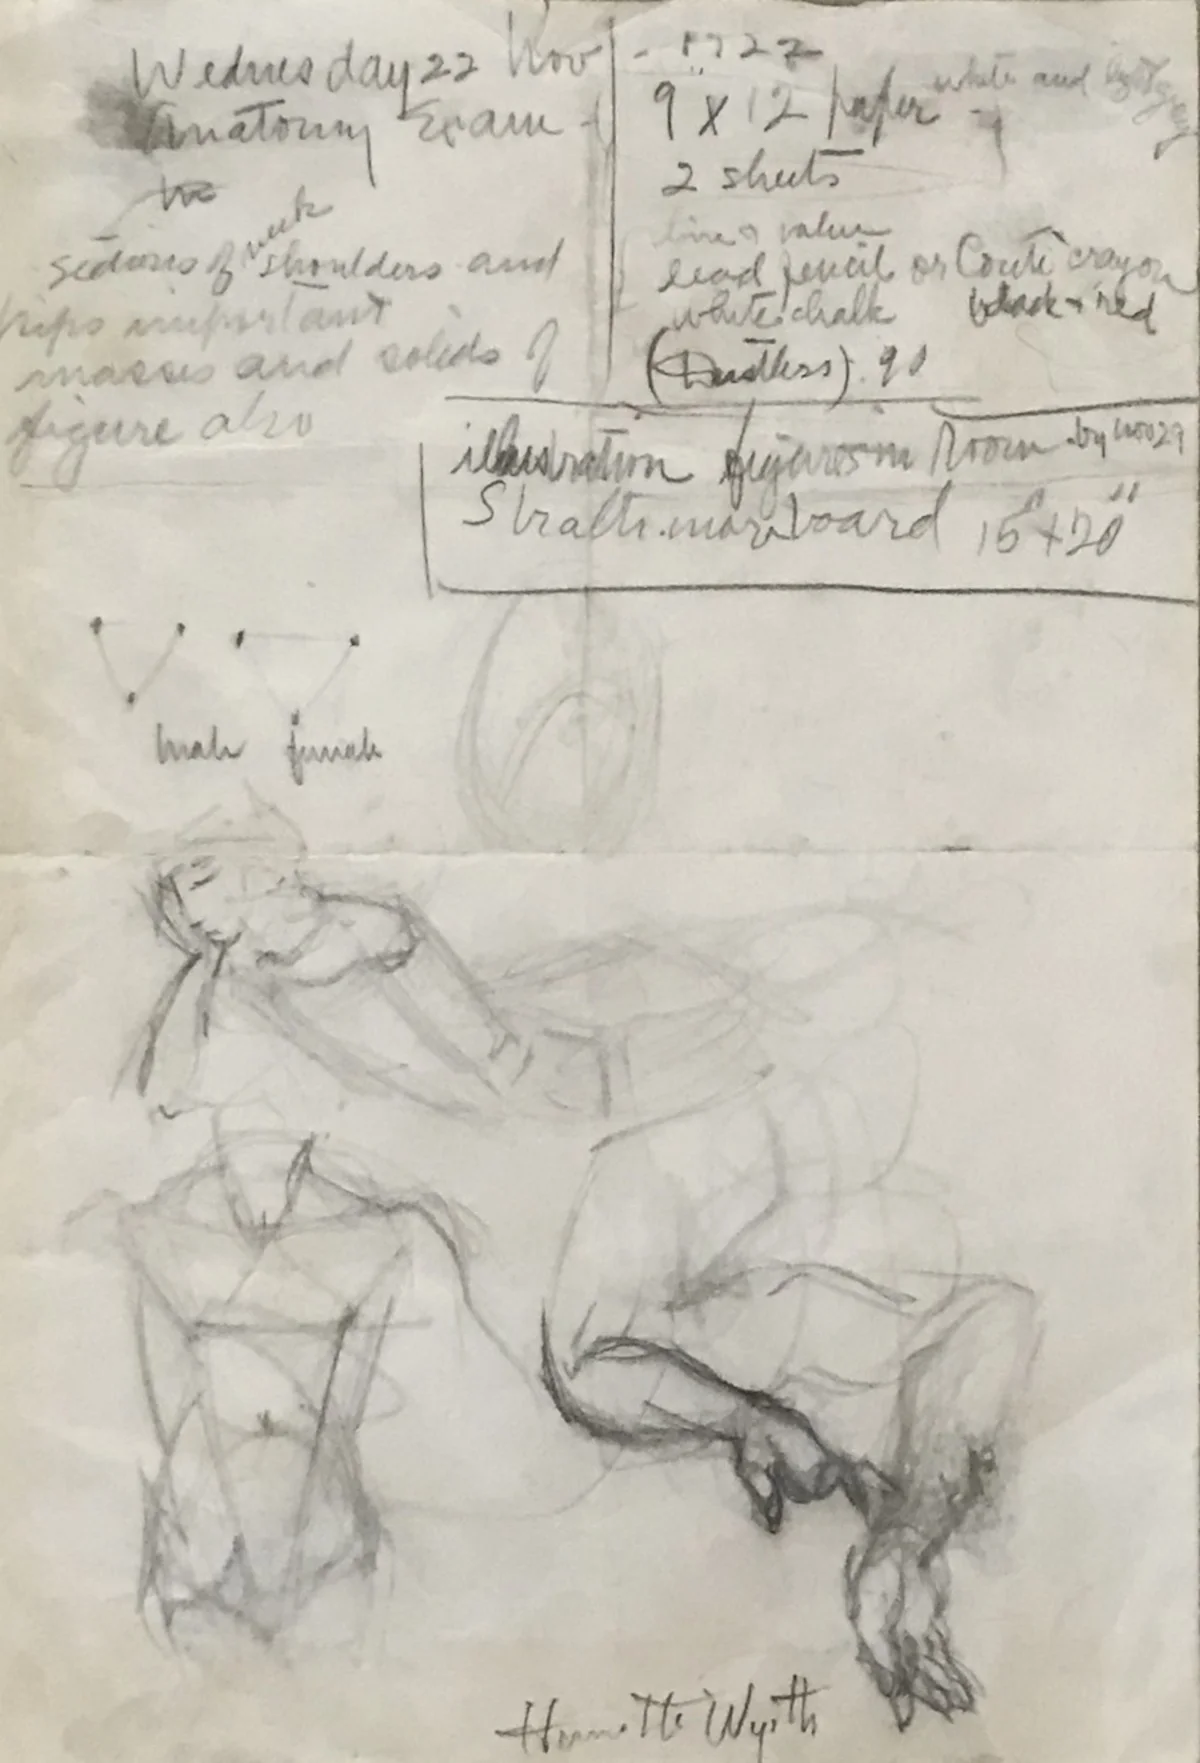 Wednesday 22 Nov
Anatomy Exam
sections of neck shoulders and
hips important
masses and solids of
figure also
9 x 12 paper white and light grey
2 sheets
line & value
lead pencil or Conté crayon
white chalk black & red
(Dustless) .90
illustration figures in Room by Nov 29
Strathmor board 15" x 20"
male female
Henriette Wyeth